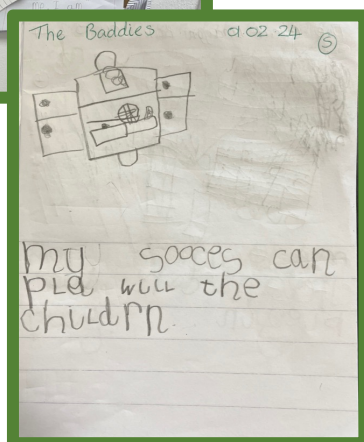 The Baddies 9 02 24
S
my sooces can
pla will the
childrn.